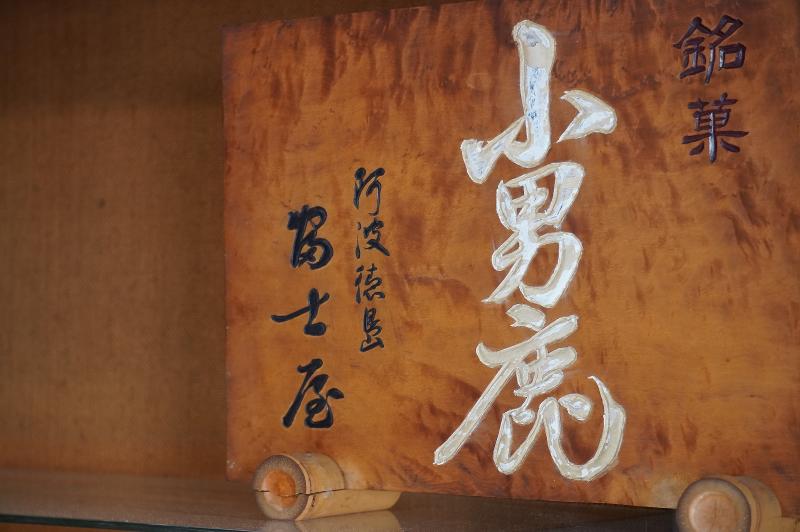 銘菓
小男鹿
阿波徳島
冨士屋